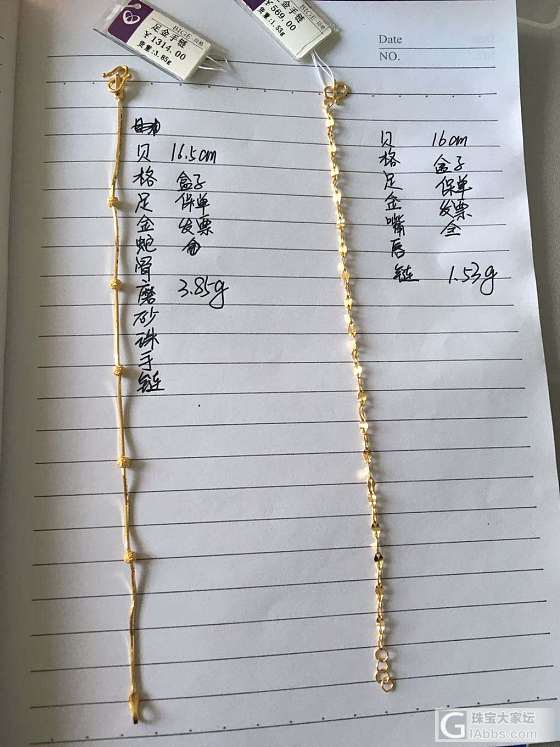 足金手链
¥1314.00
货重:3.85g
足金手链
¥569.00
货重:1.53g
Date
NO.
贝格足金蛇骨磨砂珠手链
16.5cm
盒子
保单
发票
全
3.85g
贝格足金嘴唇链
16cm
盒子
保单
发票
全
1.53g
珠宝大家坛
G1Abbs.com